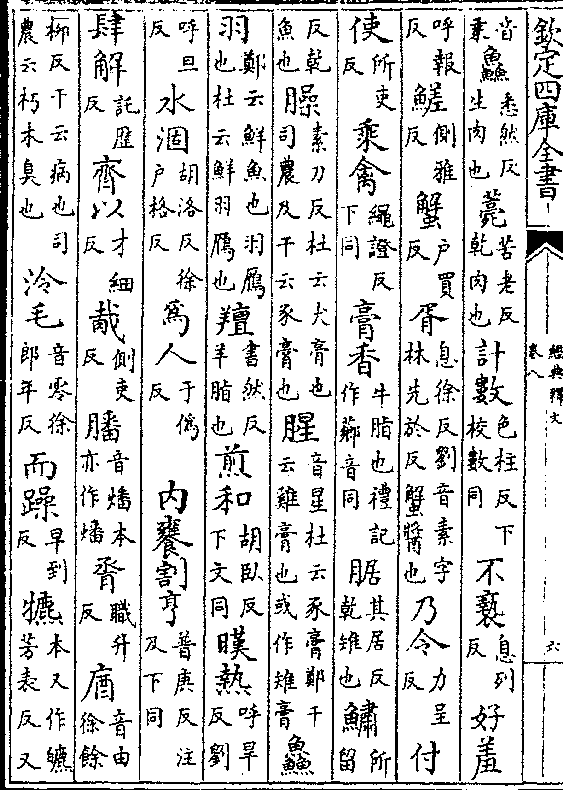 欽定四庫全書
經典釋文
卷八
六
皆悉然反鱻秉生肉也薧苦老反乾肉也計數色柱反下校數同不褻息列反好羞
呼報反鮺側雅反蟹戶買反胥息徐反劉音素字林先於反蟹醬也乃令力呈反付
使所吏反乘禽繩證反下同膏香牛脂也禮記作薌音同腒其居反乾雉也鱐所留
反乾魚也臊素刀反杜云犬膏也司農及干云豕膏也腥音星杜云豕膏鄭干云雞膏也或作雉膏鱻
羽鄭云鮮魚也羽鴈也杜云鮮羽鴈也羶書然反羊脂也煎和胡臥反下文同暵熱呼旱反劉
呼旦反水涸胡洛反徐戶格反爲人于僞反內饔割亨普庚反注及下同
肆解託歷反齊以才細反胾側吏反膰音燔本亦作燔脀職升反庮音由徐餘
柳反干云病也司農云朽木臭也泠毛音零徐郎年反而躁早到反犥本又作皫芳表反又